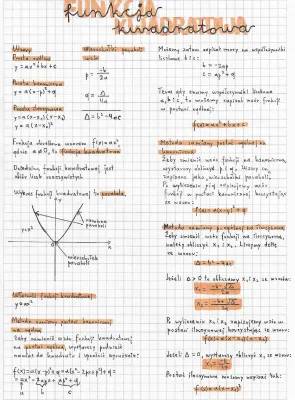 funkcja
kwadratowa
Wzory
Postać ogólna
y = ax² + bx + c
Postać kanoniczna
y = a(x-p)² + q
Postać iloczynowa
y = a(x-x₁)(x-x₂)
y = a(x-x₀)²
Wierzchołek paraboli
p = -b/2a
q = -Δ/4a
Δ = b² - 4ac
Funkcja określona wzorem f(x) = ax²,
gdzie a ≠ 0, to funkcja kwadratowa
Dziedziną funkcji kwadratowej jest
zbiór liczb rzeczywistych
Wykres funkcji kwadratowej to parabola.
y = x²
ramiona
paraboli
wierzchołek
paraboli
funkcji kwadratowej
y = ax²
Metoda zamiany postaci kanonicznej
na ogólną
Aby zamienić wzór funkcji kwadratowej
na postać ogólną, wystarczy podnieść
nawias do kwadratu i uprościć wyrażenie:
f(x) = a(x-p)² + q = a(x² - 2px + p²) + q =
= ax² - 2apx + ap² + q
a
b
c
Możemy zatem zapisać wzory na współczynniki
liczbowe b i c:
b = -2ap
c = ap² + q
Teraz gdy znamy współczynniki liczbowe
a, b i c, to możemy zapisać wzór funkcji
w postaci ogólnej:
f(x) = ax² + bx + c
Metoda zamiany postaci ogólnej na
kanoniczną
Żeby zamienić wzór funkcji na kanoniczną,
wystarczy obliczyć p i q. Wzory są
wierzchołka paraboli.
Po wyliczeniu p i q
funkcji w postaci kanonicznej, korzystając
ze wzoru:
f(x) = a(x-p)² + q
Metoda zamiany postaci ogólnej na iloczynową
Żeby zamienić wzór funkcji na iloczynową,
należy obliczyć x₁ i x₂. Liczymy deltę
ze wzoru:
Δ = b² - 4ac
Jeżeli Δ > 0 to obliczamy x₁ i x₂ ze wzorów:
x₁ = -b-√Δ/2a
x₂ = -b+√Δ/2a
Po wyliczeniu x₁ i x₂ zapisujemy wzór w
postaci iloczynowej korzystając ze wzoru:
f(x) = a(x-x₁)(x-x₂)
Jeżeli Δ = 0, wystarczy obliczyć x₀
ze wzoru:
Postać iloczynową możemy zapisać tak:
f(x) = a(x-x₀)²